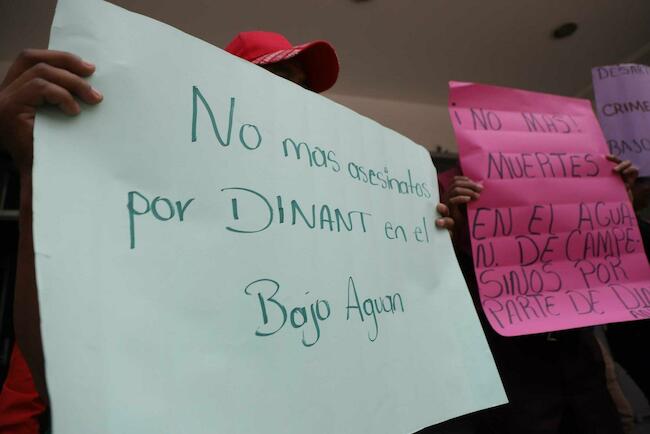 No mas asesinatos
por DINANT en el
Bajo Aguan
¡NO MAS!
MUERTES
EN EL AGUA-
N. DE CAMPE-
SINOS POR
PARTE DE
CRIME
BAJO